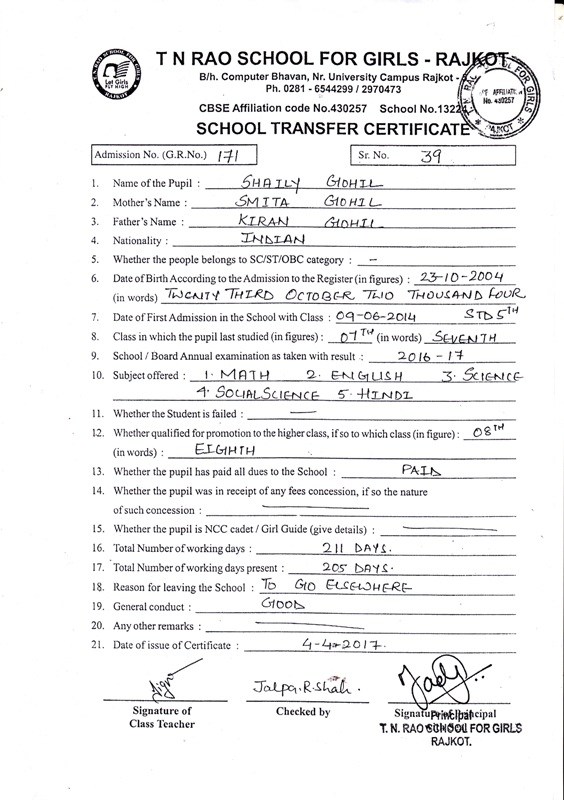 T. N. RAO SCHOOL FOR GIRLS
Let Girls
FLY HIGH
RAJKOT
T N RAO SCHOOL FOR GIRLS - RAJKOT
B/h. Computer Bhavan, Nr. University Campus Rajkot -
Ph. 0281 - 6544299 / 2970473
CBSE Affiliation code No.430257 School No.1322
AFFILIATION
No. 430257
RAJKOT
SCHOOL TRANSFER CERTIFICATE
Admission No. (G.R.No.) 171 Sr. No. 39
1. Name of the Pupil : SHAILY GOHIL
2. Mother's Name : SMITA GOHIL
3. Father's Name : KIRAN GOHIL
4. Nationality : INDIAN
5. Whether the people belongs to SC/ST/OBC category : –
6. Date of Birth According to the Admission to the Register (in figures) : 23-10-2004
(in words) TWENTY THIRD OCTOBER TWO THOUSAND FOUR
7. Date of First Admission in the School with Class : 09-06-2014 STD 5TH
8. Class in which the pupil last studied (in figures) : 07TH (in words) SEVENTH
9. School / Board Annual examination as taken with result : 2016 - 17
10. Subject offered : 1. MATH 2. ENGLISH 3. SCIENCE
4. SOCIALSCIENCE 5. HINDI
11. Whether the Student is failed : —
12. Whether qualified for promotion to the higher class, if so to which class (in figure) : 08TH
(in words) : EIGHTH
13. Whether the pupil has paid all dues to the School : PAID
14. Whether the pupil was in receipt of any fees concession, if so the nature
of such concession : —
15. Whether the pupil is NCC cadet / Girl Guide (give details) : —
16. Total Number of working days : 211 DAYS.
17. Total Number of working days present : 205 DAYS.
18. Reason for leaving the School : TO GO ELSEWHERE
19. General conduct : GOOD
20. Any other remarks : —
21. Date of issue of Certificate : 4-4-2017.
Jalpa.R.Shah.
Signature of Checked by Signature Principal
Class Teacher T. N. RAO SCHOOL FOR GIRLS
RAJKOT.